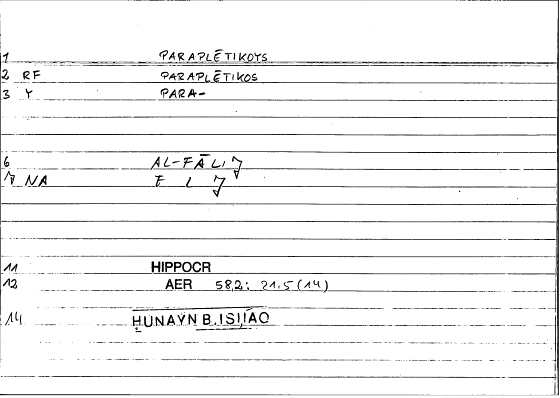 1 PARAPLĒTIKOTS
2 RF PARAPLĒTIKOS
3 Y PARA-
6 AL-FĀLIǦ
7 NA F L Ǧ
11 HIPPOCR
12 AER 58,2: 21.5 (14)
14 ḤUNAYN B. ISḤĀQ